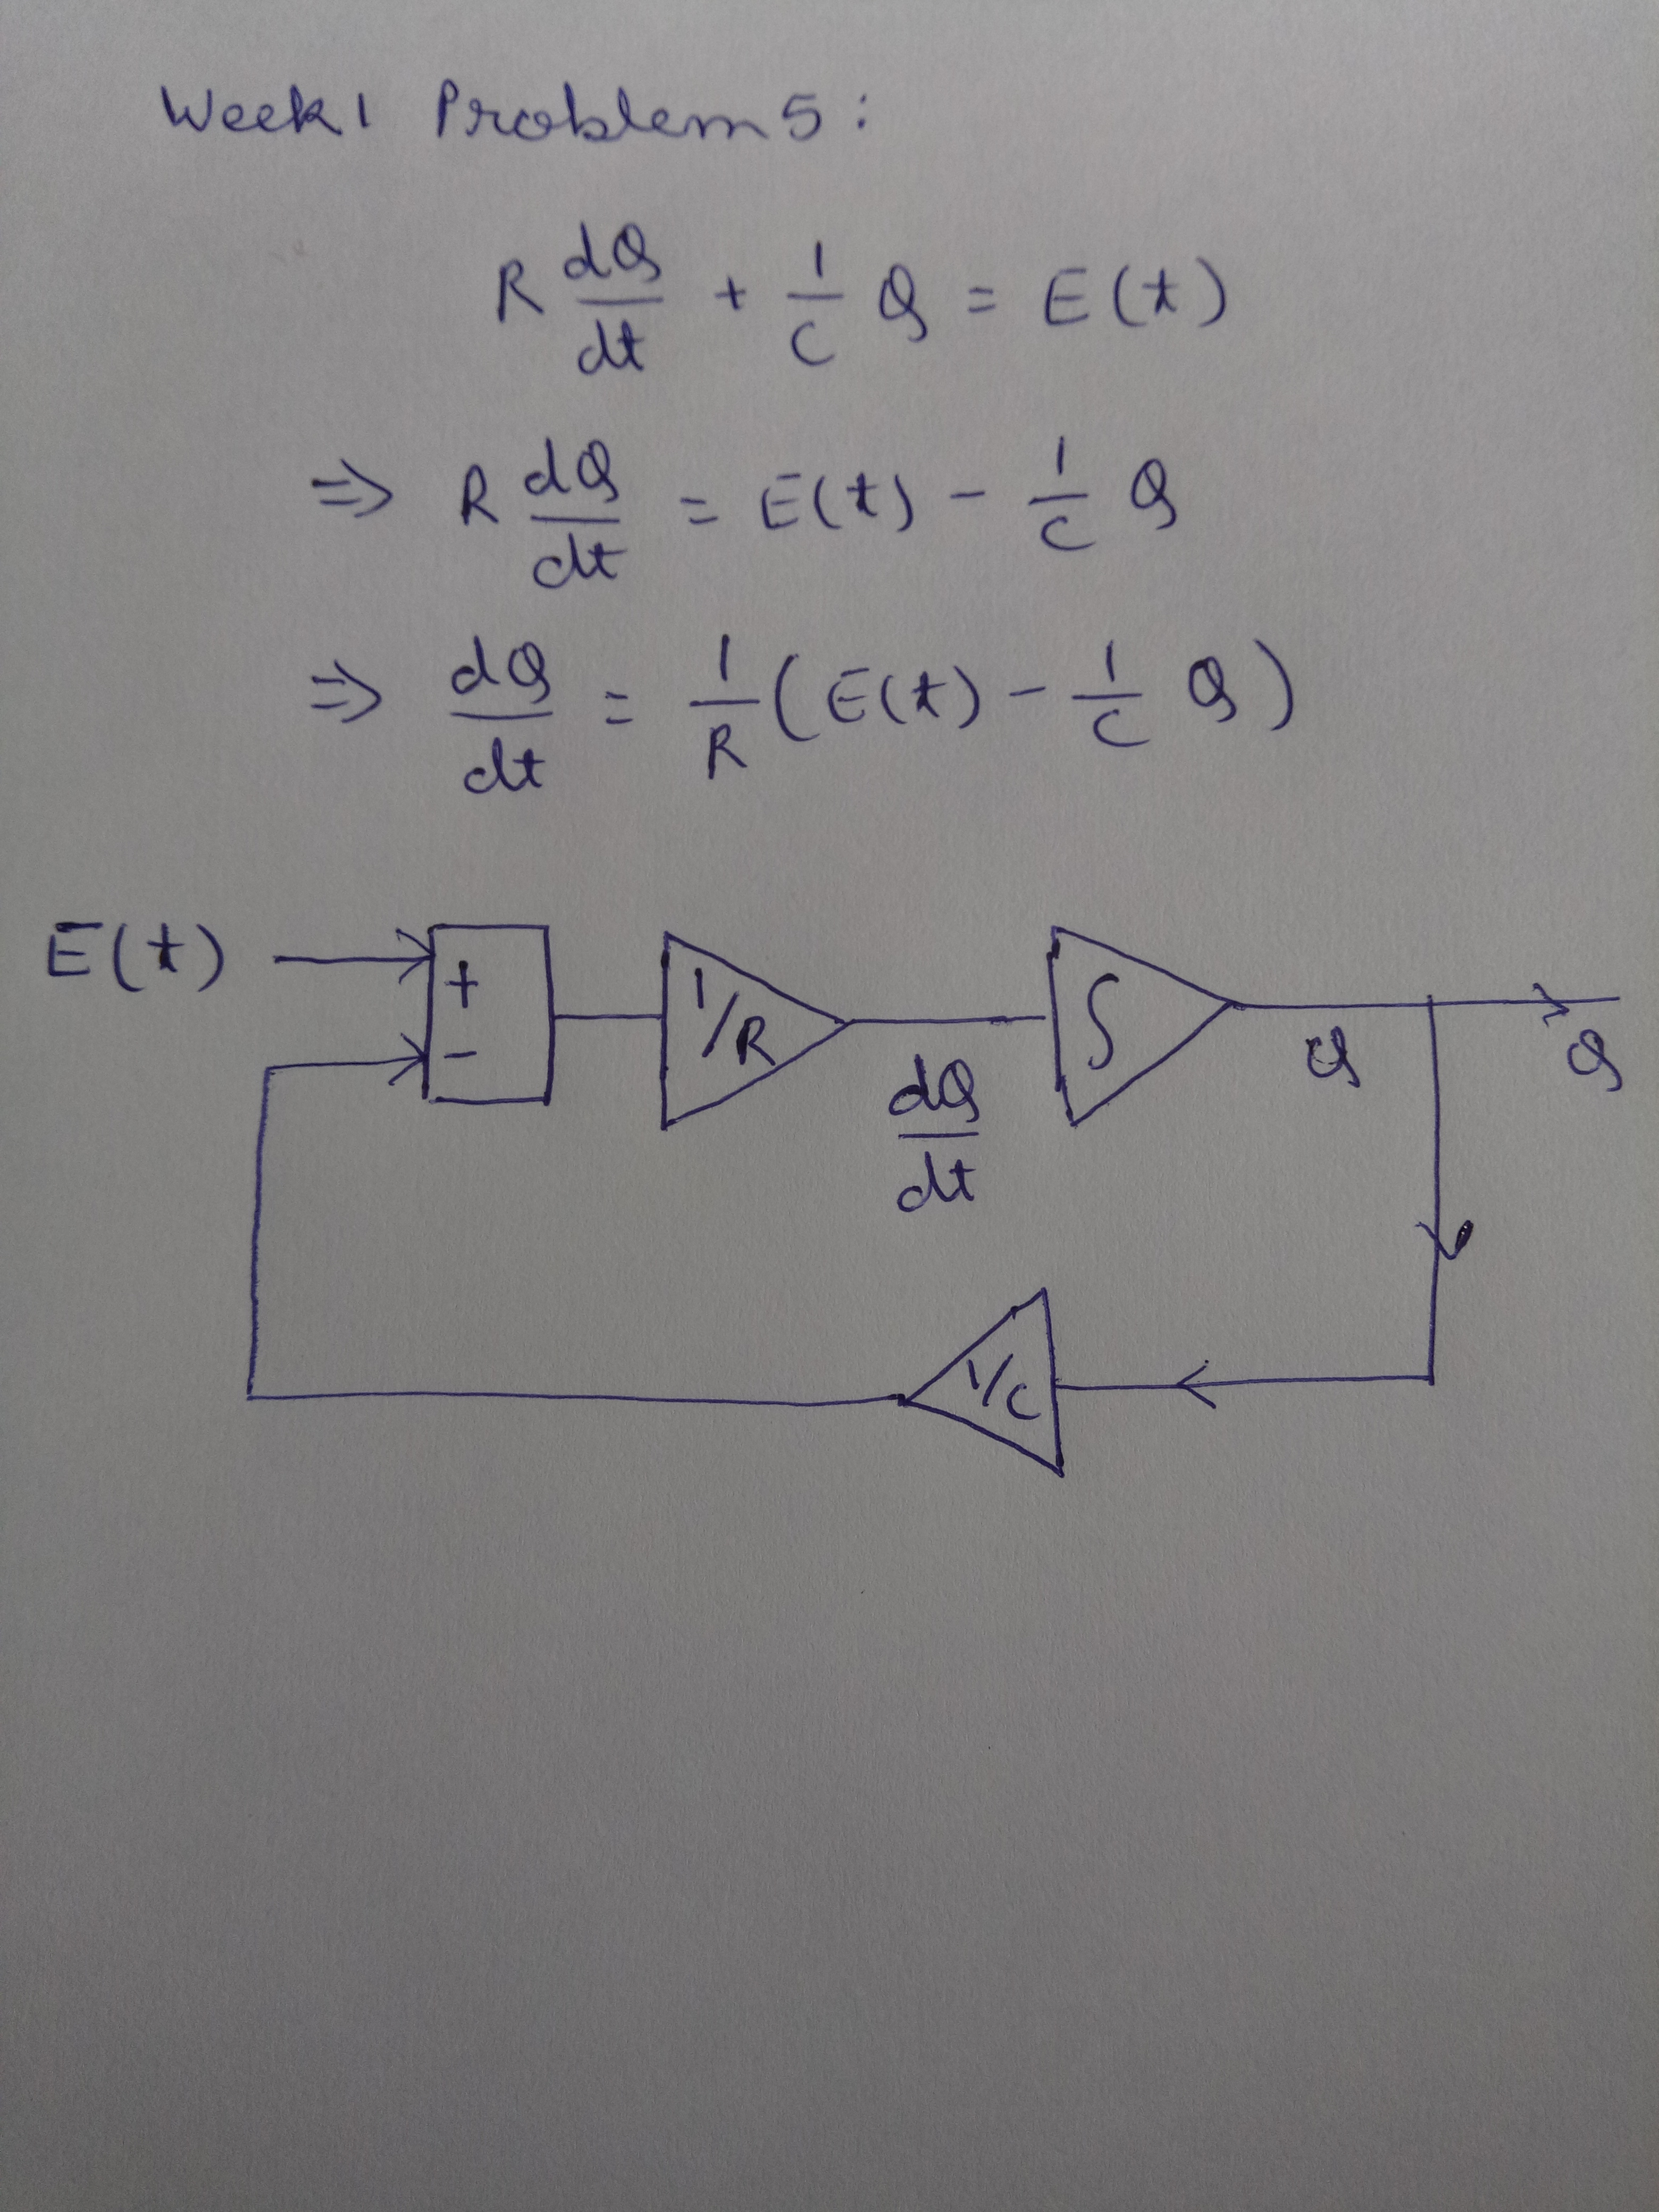 Week 1 Problem 5:
R dQ/dt + 1/C Q = E(t)
⇒ R dQ/dt = E(t) - 1/C Q
⇒ dQ/dt = 1/R (E(t) - 1/C Q)
E(t) + - 1/R dQ/dt ∫ Q Q
1/C